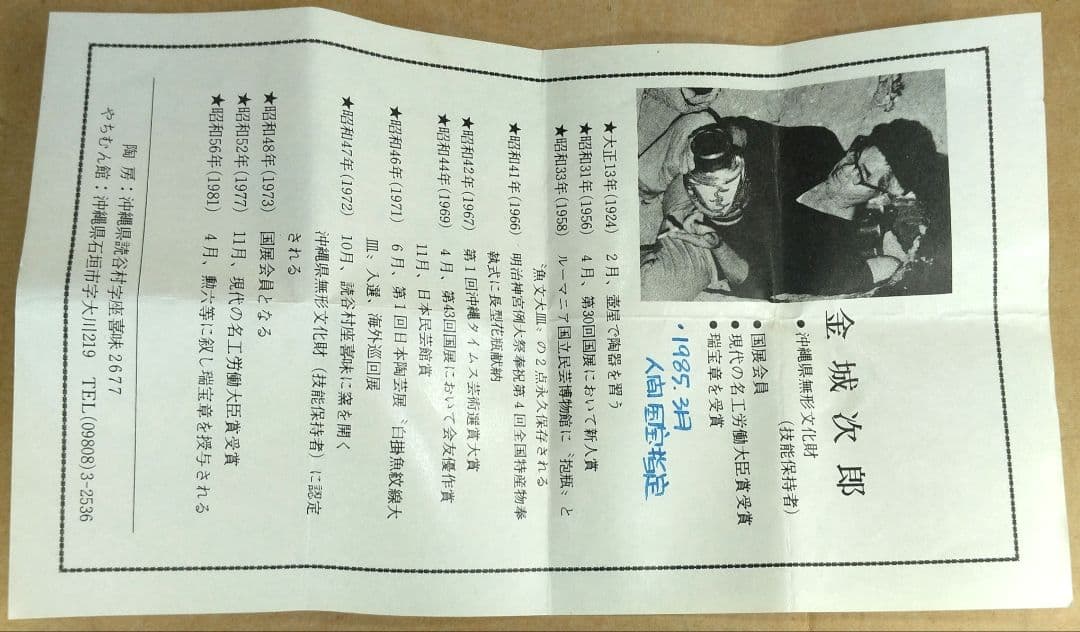 金城次郎
●沖縄県無形文化財
(技能保持者)
●国展会員
●現代の名工労働大臣賞受賞
●瑞宝章を受賞
・1985 3月
人間国宝指定
★大正13年(1924) 2月、壺屋で陶器を習う
★昭和31年(1956) 4月、第30回国展において新人賞
★昭和33年(1958) ルーマニア国立民芸博物館に〝抱瓶〟と
〝漁文大皿〟の2点永久保存される
★昭和41年(1966) 明治神宮例大祭奉祝第4回全国特産物奉
執式に長型花瓶献納
★昭和42年(1967) 第1回沖縄タイムス芸術選賞大賞
★昭和44年(1969) 4月、第43回国展において会友優作賞
11月、日本民芸館賞
★昭和46年(1971) 6月、第1回日本陶芸展〝白掛魚紋線大
皿〟入選、海外巡回展
★昭和47年(1972) 10月、読谷村座喜味に窯を開く
沖縄県無形文化財(技能保持者)に認定
される
★昭和48年(1973) 国展会員となる
★昭和52年(1977) 11月、現代の名工労働大臣賞受賞
★昭和56年(1981) 4月、勲六等に叙し瑞宝章を授与される
陶房:沖縄県読谷村字座喜味2677
やちむん館:沖縄県石垣市字大川219 TEL(09808)3-2536